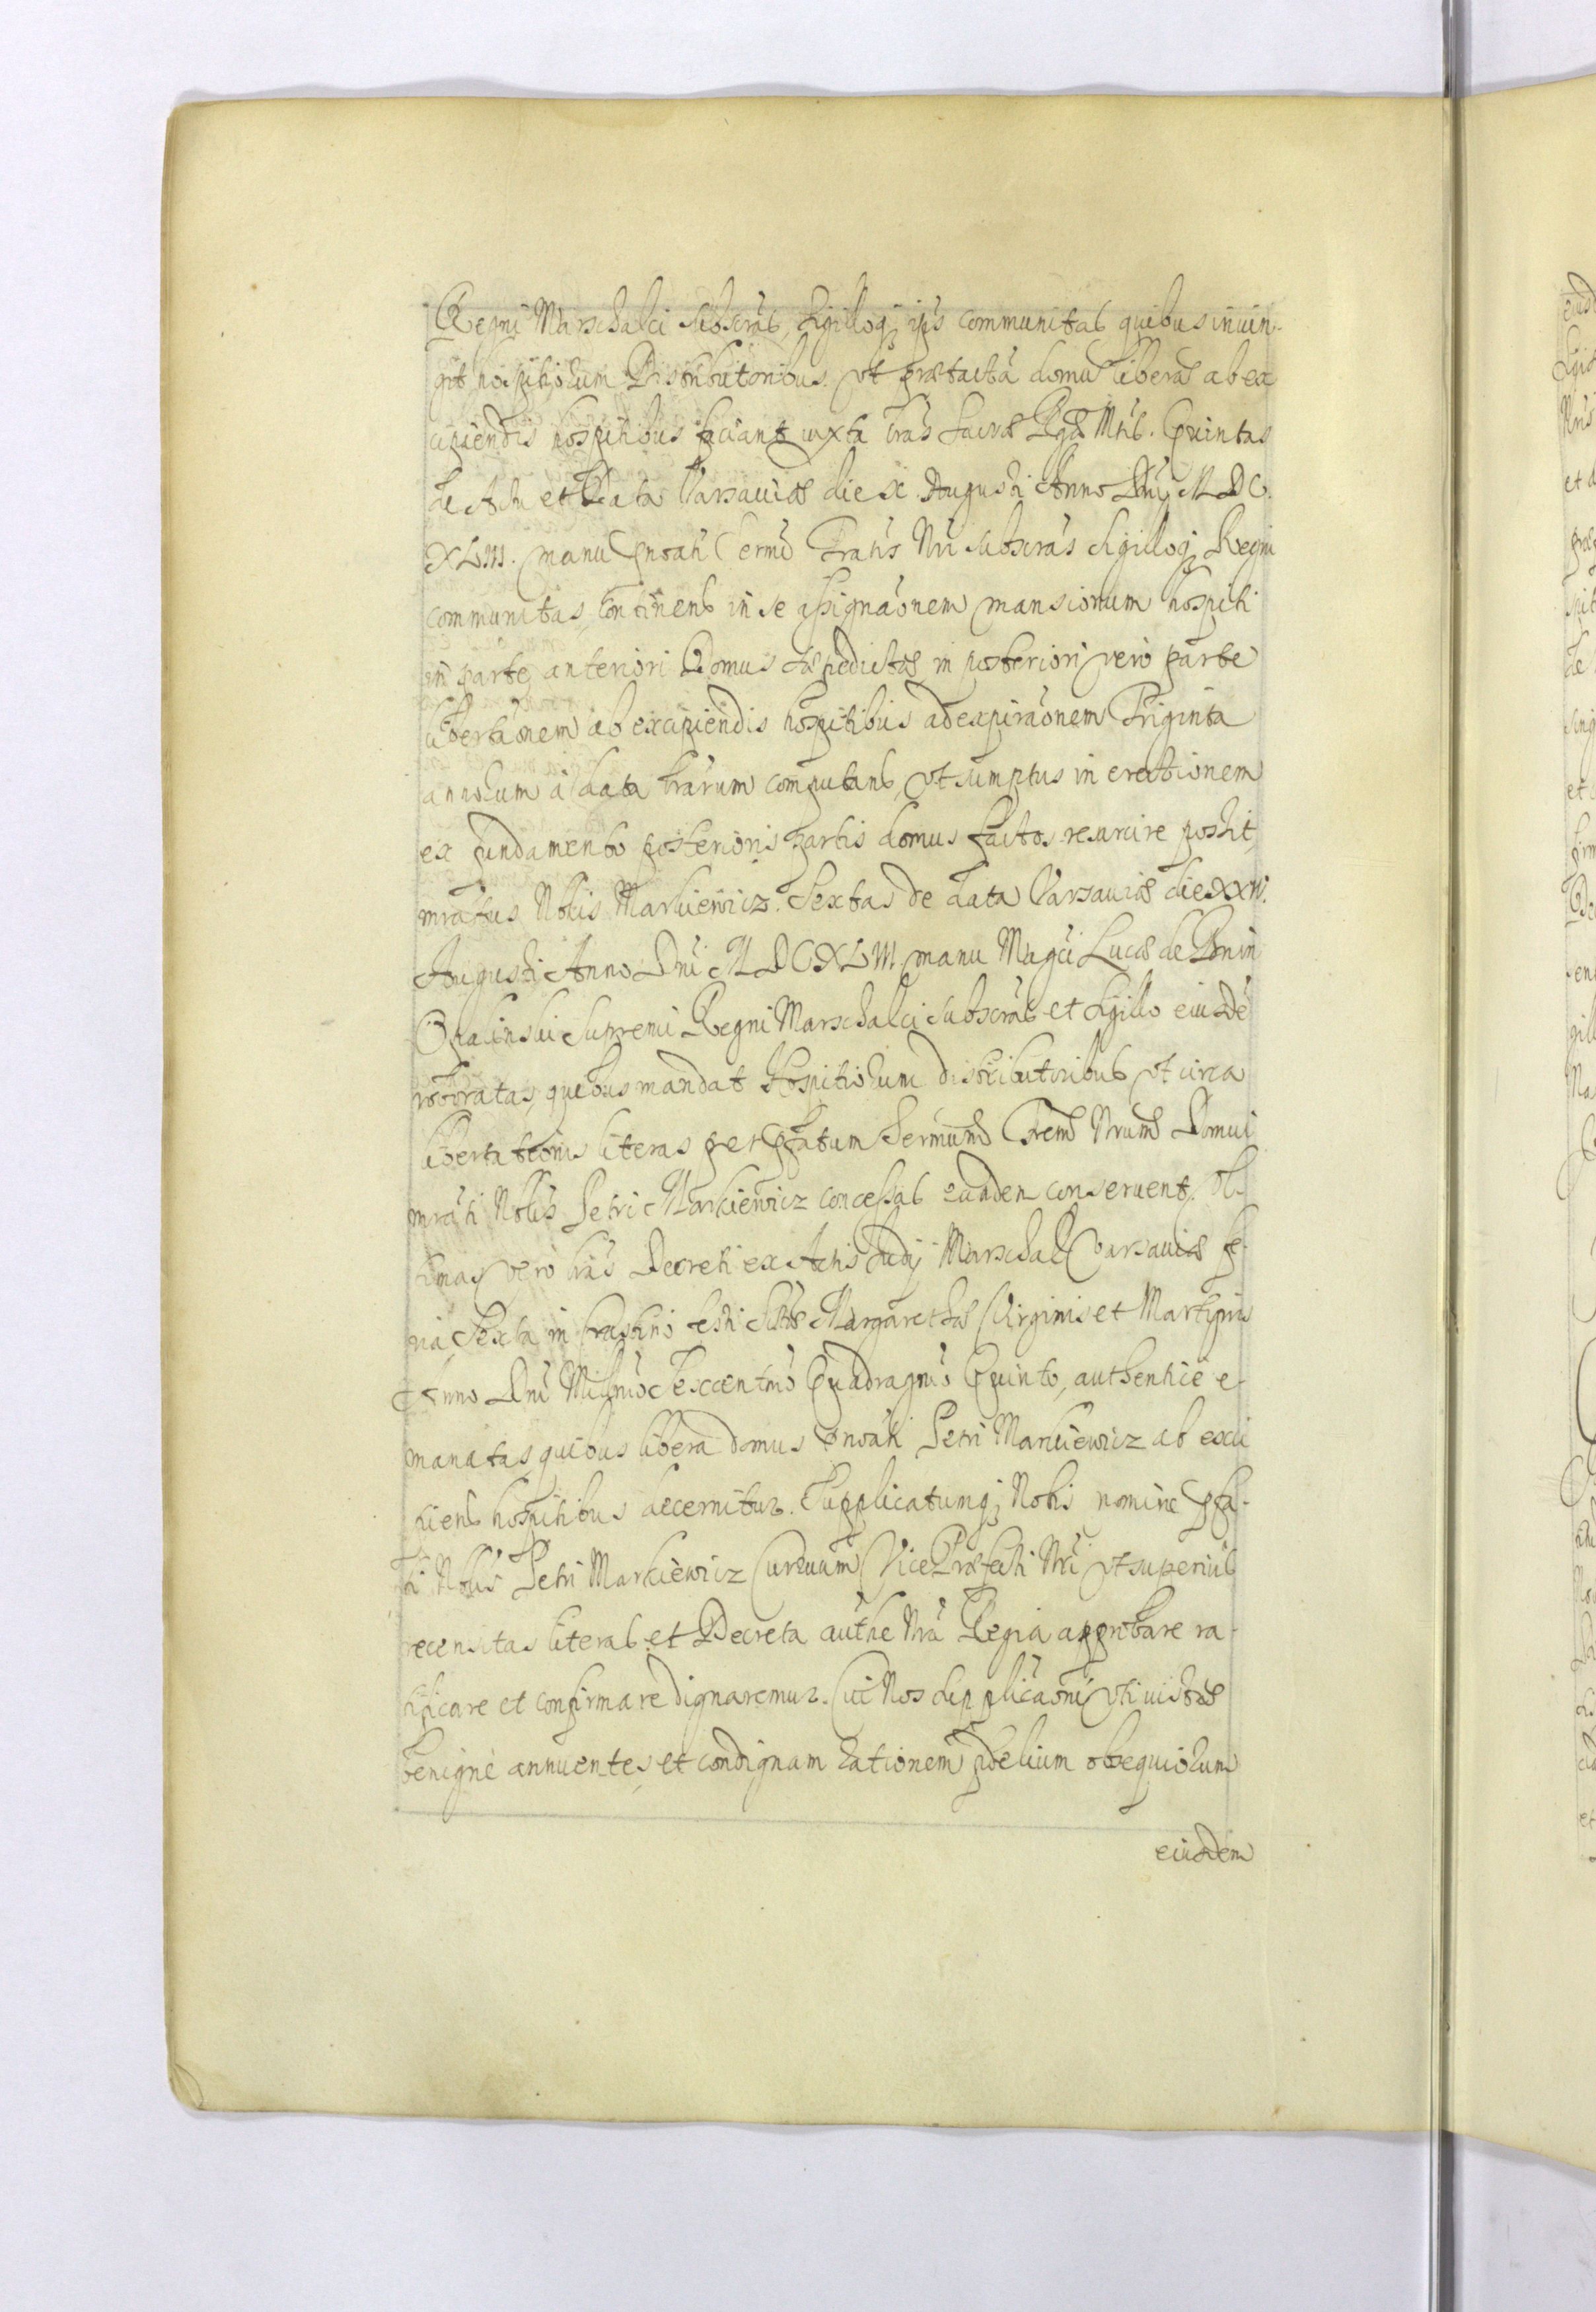 Regni Marschalci subscrās, Sigilloq; ip̄s communitas quibus iniun-
git hospitiorum Distributoribus. vt prætactā domū liberā ab ex
cipiendis hospitibus faciant iuxta lrās Sacræ Rgæ Mtis. Quintas
de Act et Data Varsauiæ die X. Augusti Anno Dnī M DC.
XLVI. manu Sermi Fratris Nri subscrās Sigilloq; Regni
communitas, continens in se assignāonem mansionum hospiti
in parte anteriori Domus in posteriori verò parte
libertāonem ab excipiendis hospitibus ad expirāonem Triginta
annorum à data lrārum computans, vt sumptus in erectionem
ex fundamento posterioris partis domus factos resarcire possit
mrātus Nobis Markiewicz. Sextas de data Varsauiæ die XXVI.
Augusti Anno Dnī M DC XLVI. manu Magci Lucæ de Bnin
Opalinski Supremi Regni Marschalci subscrās et Sigillo eiusdē
roboratas, quibus mandat Hospitiorum distributoribus vt circa
libertationis literas per Sermum Nrum Domui
mrāti Nobis Petri Markiewicz concessas eundem conseruent. Vl-
timas verò lrās Decreti ex Actis Marschal Varsauiæ fe-
ria Sexta in crastino festi Stæ Margarethæ Virginis et Martyris
Anno Dnī Millmo Sexcentmo Quadragmo Quinto, authenticè e-
manatas, quibus libera domus Petri Markiewicz ab exci
piens hospitibus decernitur. Supplicatumq; Nobis nomine pfa-
ti Nobis Petri Markiewicz VicePræfecti Nri vt superius
recensitas literas et Decreta authe Nrā Regia approbare ra-
tificare et confirmare dignaremur. Cui Nos supplicāoni vti iustæ
benignè annuentes, et condignam rationem fidelium obsequiorum
eiusdem